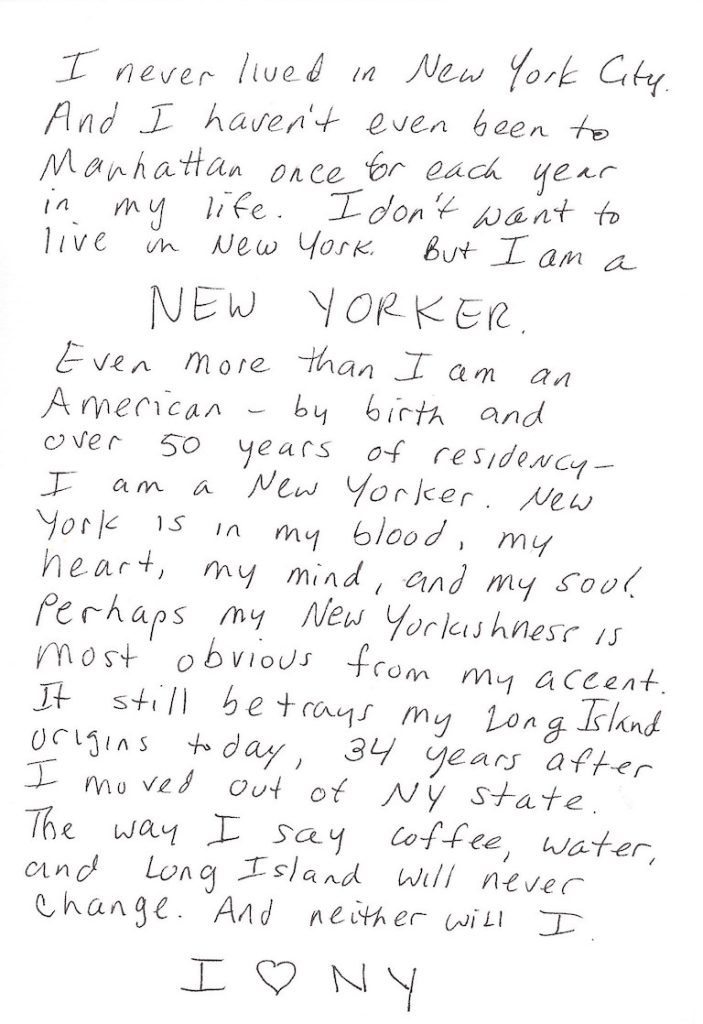 I never lived in New York City.
And I haven't even been to
Manhattan once for each year
in my life. I don't want to
live in New York. But I am a
NEW YORKER.
Even more than I am an
American – by birth and
over 50 years of residency –
I am a New Yorker. New
York is in my blood, my
heart, my mind, and my soul.
Perhaps my New Yorkishness is
most obvious from my accent.
It still betrays my Long Island
origins today, 34 years after
I moved out of NY state.
The way I say coffee, water,
and Long Island will never
change. And neither will I.
I ♡ NY